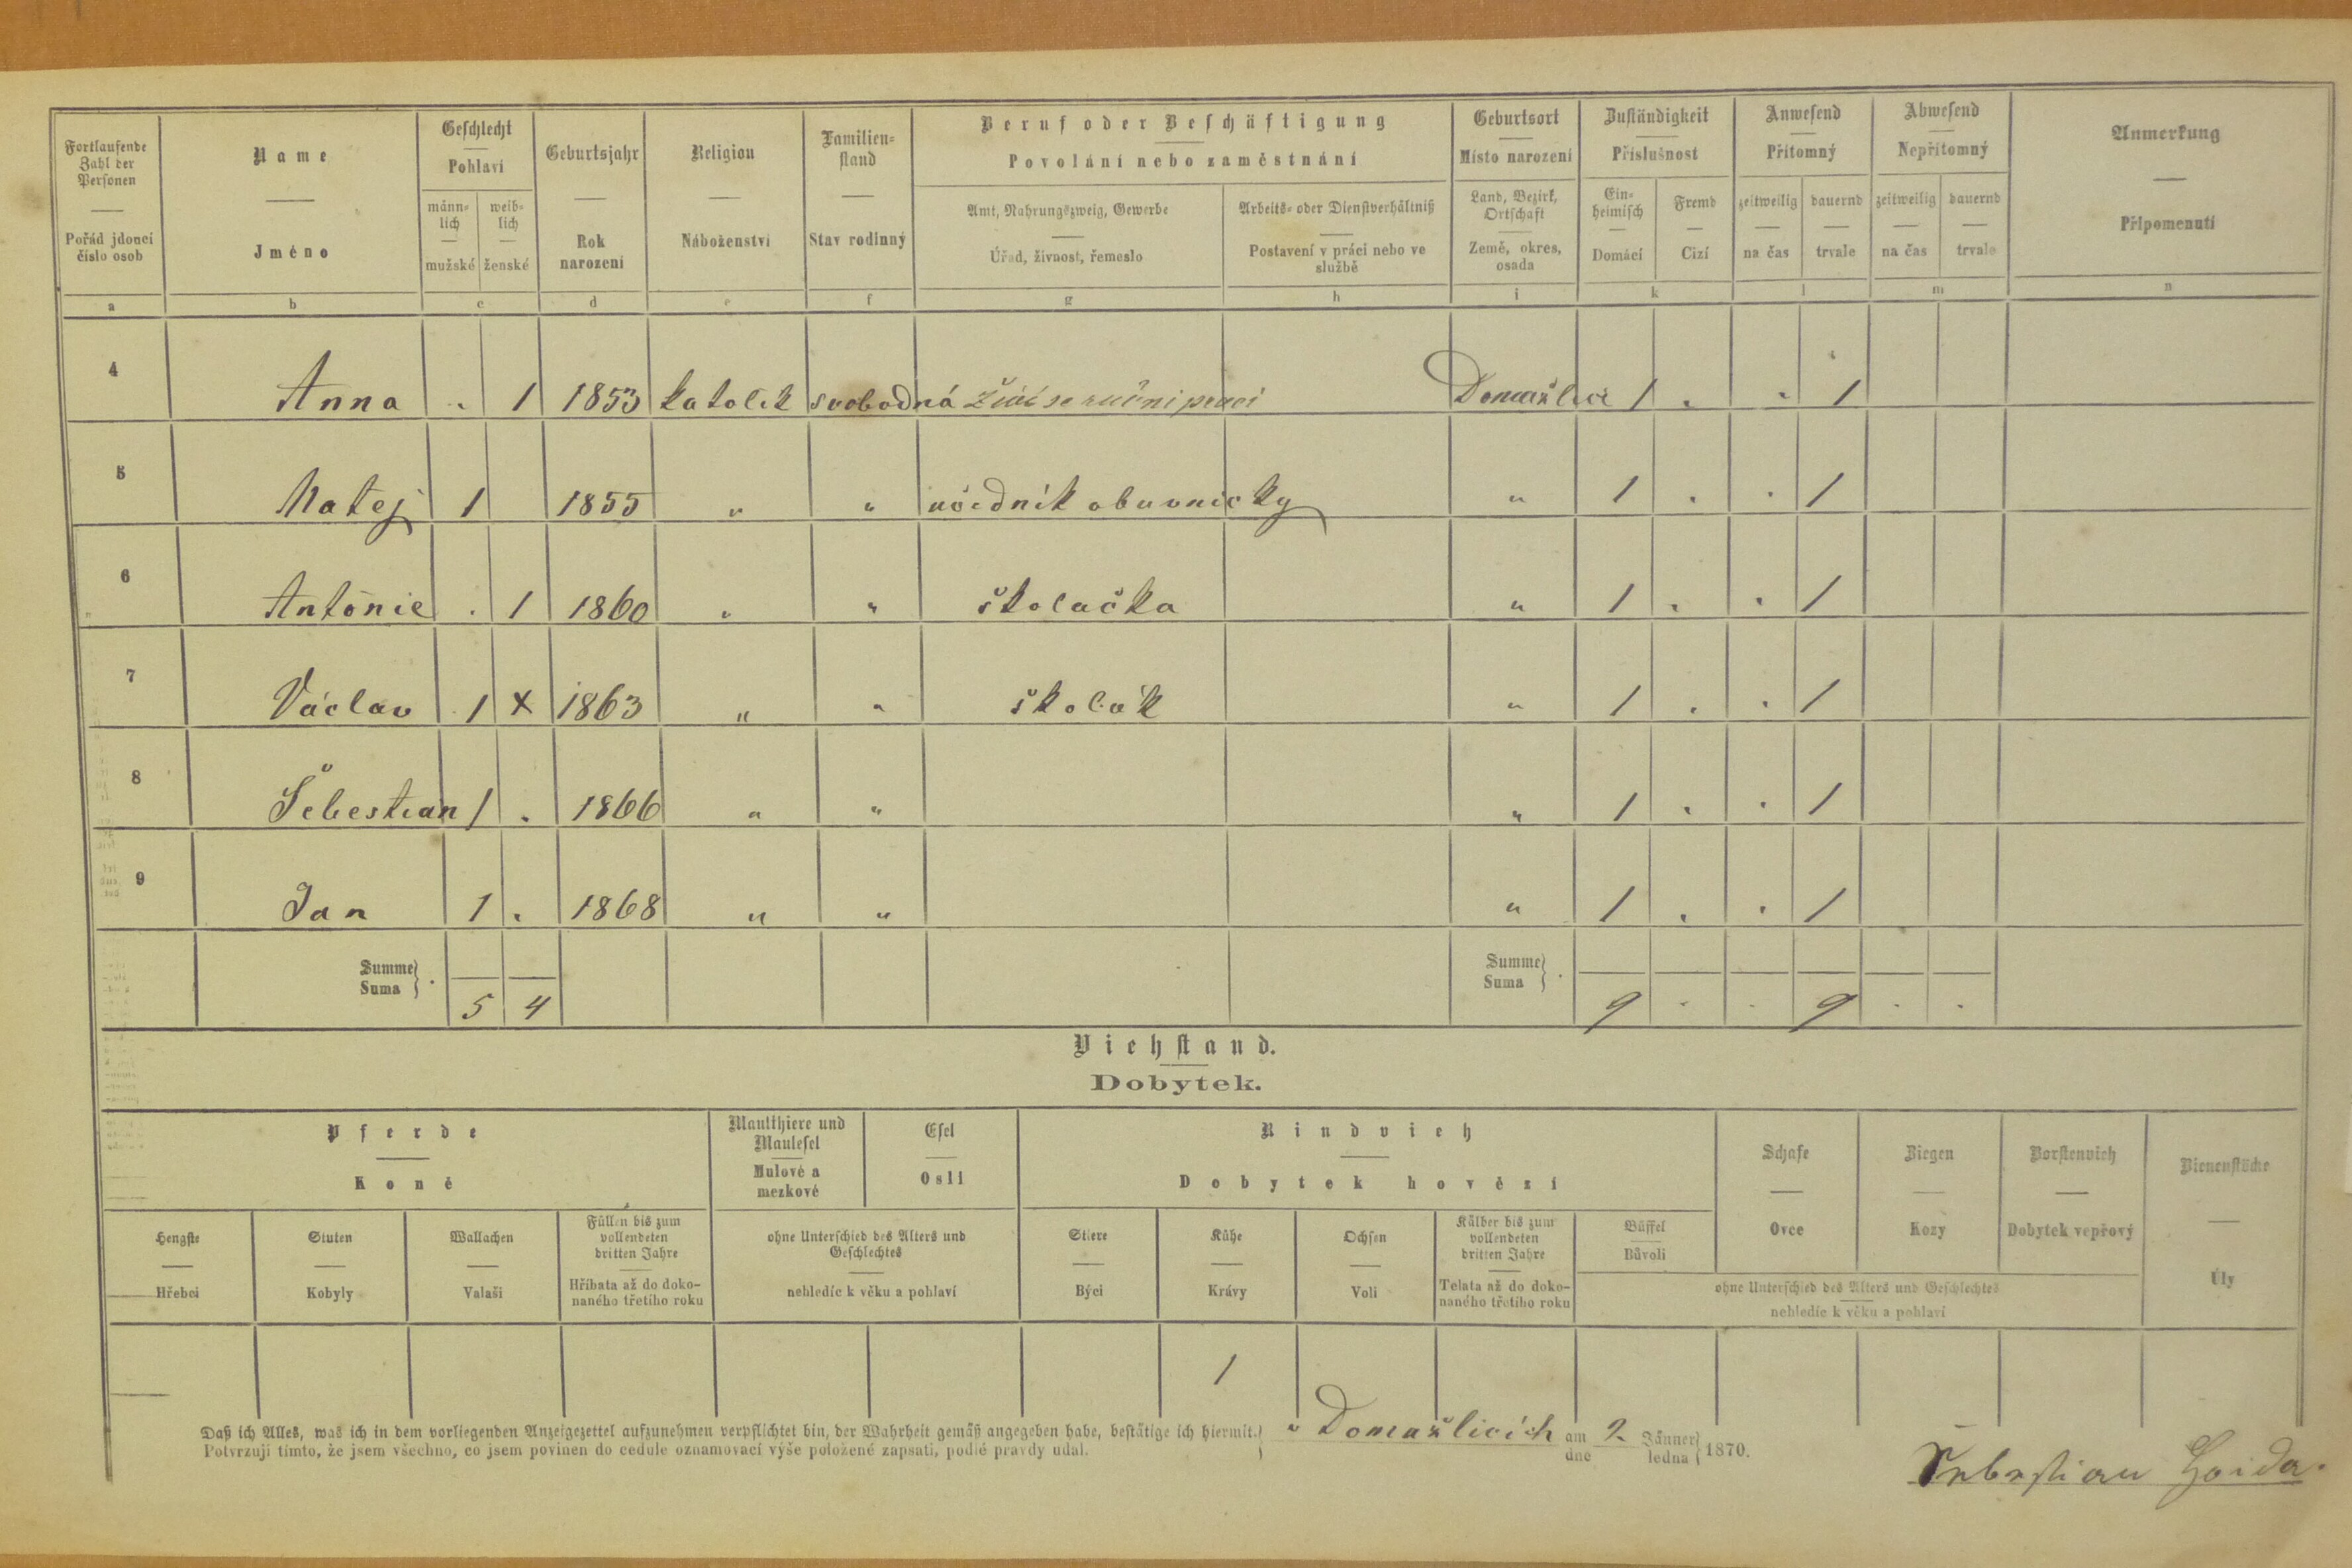 Fortlaufende Zahl der Personen
Pořád jdoucí číslo osob
Name
Jméno
Geschlecht
Pohlaví
männlich
mužské
weiblich
ženské
Geburtsjahr
Rok narození
Religion
Náboženství
Familienstand
Stav rodinný
Beruf oder Beschäftigung
Povolání nebo zaměstnání
Amt, Nahrungszweig, Gewerbe
Úřad, živnost, řemeslo
Arbeits- oder Dienstverhältniß
Postavení v práci nebo ve službě
Geburtsort
Místo narození
Land, Bezirk, Ortschaft
Země, okres, osada
Zuständigkeit
Příslušnost
Einheimisch
Domácí
Fremd
Cizí
Anwesend
Přítomný
zeitweilig
na čas
dauernd
trvale
Abwesend
Nepřítomný
zeitweilig
na čas
dauernd
trvale
Anmerkung
Připomenutí
a b c d e f g h i k l m n
4 Anna . 1 1853 katolik svobodná živí se ruční prací Domažlice 1 . . 1
5 Matej 1 1855 " " učedník obuvnický " 1 . . 1
6 Antonie . 1 1860 " " školačka " 1 . . 1
7 Václav 1 x 1863 " " školák " 1 . . 1
8 Šebestian 1 . 1866 " " " 1 . . 1
9 Jan 1 . 1868 " " " 1 . . 1
Summe
Suma } . 5 4 Summe
Suma } . 9 . . 9 . .
Viehstand.
Dobytek.
Pferde
Koně
Maulthiere und Maulesel
Mulové a mezkové
Esel
Osli
Rindvieh
Dobytek hovězí
Schafe
Ovce
Ziegen
Kozy
Borstenvieh
Dobytek vepřový
Bienenstöcke
Úly
Hengste
Hřebci
Stuten
Kobyly
Wallachen
Valaši
Füllen bis zum vollendeten dritten Jahre
Hříbata až do dokonaného třetího roku
ohne Unterschied des Alters und Geschlechtes
nehledíc k věku a pohlaví
Stiere
Býci
Kühe
Krávy
Ochsen
Voli
Kälber bis zum vollendeten dritten Jahre
Telata až do dokonaného třetího roku
Büffel
Bůvoli
ohne Unterschied des Alters und Geschlechtes
nehledíc k věku a pohlaví
1
Daß ich Alles, was ich in dem vorliegenden Anzeigezettel aufzunehmen verpflichtet bin, der Wahrheit gemäß angegeben habe, bestätige ich hiermit.
Potvrzuji tímto, že jsem všechno, co jsem povinen do cedule oznamovací výše položené zapsati, podlé pravdy udal.
v Domažlicích am
dne 2. Jänner
ledna 1870.
Šebestian